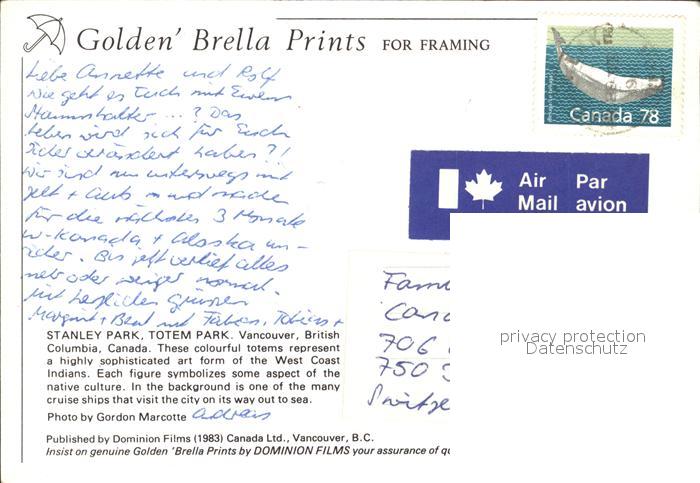 Golden' Brella Prints FOR FRAMING
Liebe Annette und Rolf
Wie geht es Euch mit Eurem
Stammhalter ...? Das
Leben wird sich für Euch
sicher verändert haben?!
Wir sind nun unterwegs mit
Zelt + Auto und machen
für die nächsten 3 Monate
W-Kanada + Alaska un-
sicher. Bis jetzt verlief alles
mehr oder weniger normal.
Mit herzlichen Grüssen
Margrit + Beat mit Fabian, Tobias +
Adrian
Canada 78
Air Mail
Par avion
Fam
Can
706
750
Switze
privacy protection
Datenschutz
STANLEY PARK, TOTEM PARK. Vancouver, British
Columbia, Canada. These colourful totems represent
a highly sophisticated art form of the West Coast
Indians. Each figure symbolizes some aspect of the
native culture. In the background is one of the many
cruise ships that visit the city on its way out to sea.
Photo by Gordon Marcotte
Published by Dominion Films (1983) Canada Ltd., Vancouver, B.C.
Insist on genuine Golden 'Brella Prints by DOMINION FILMS your assurance of qu